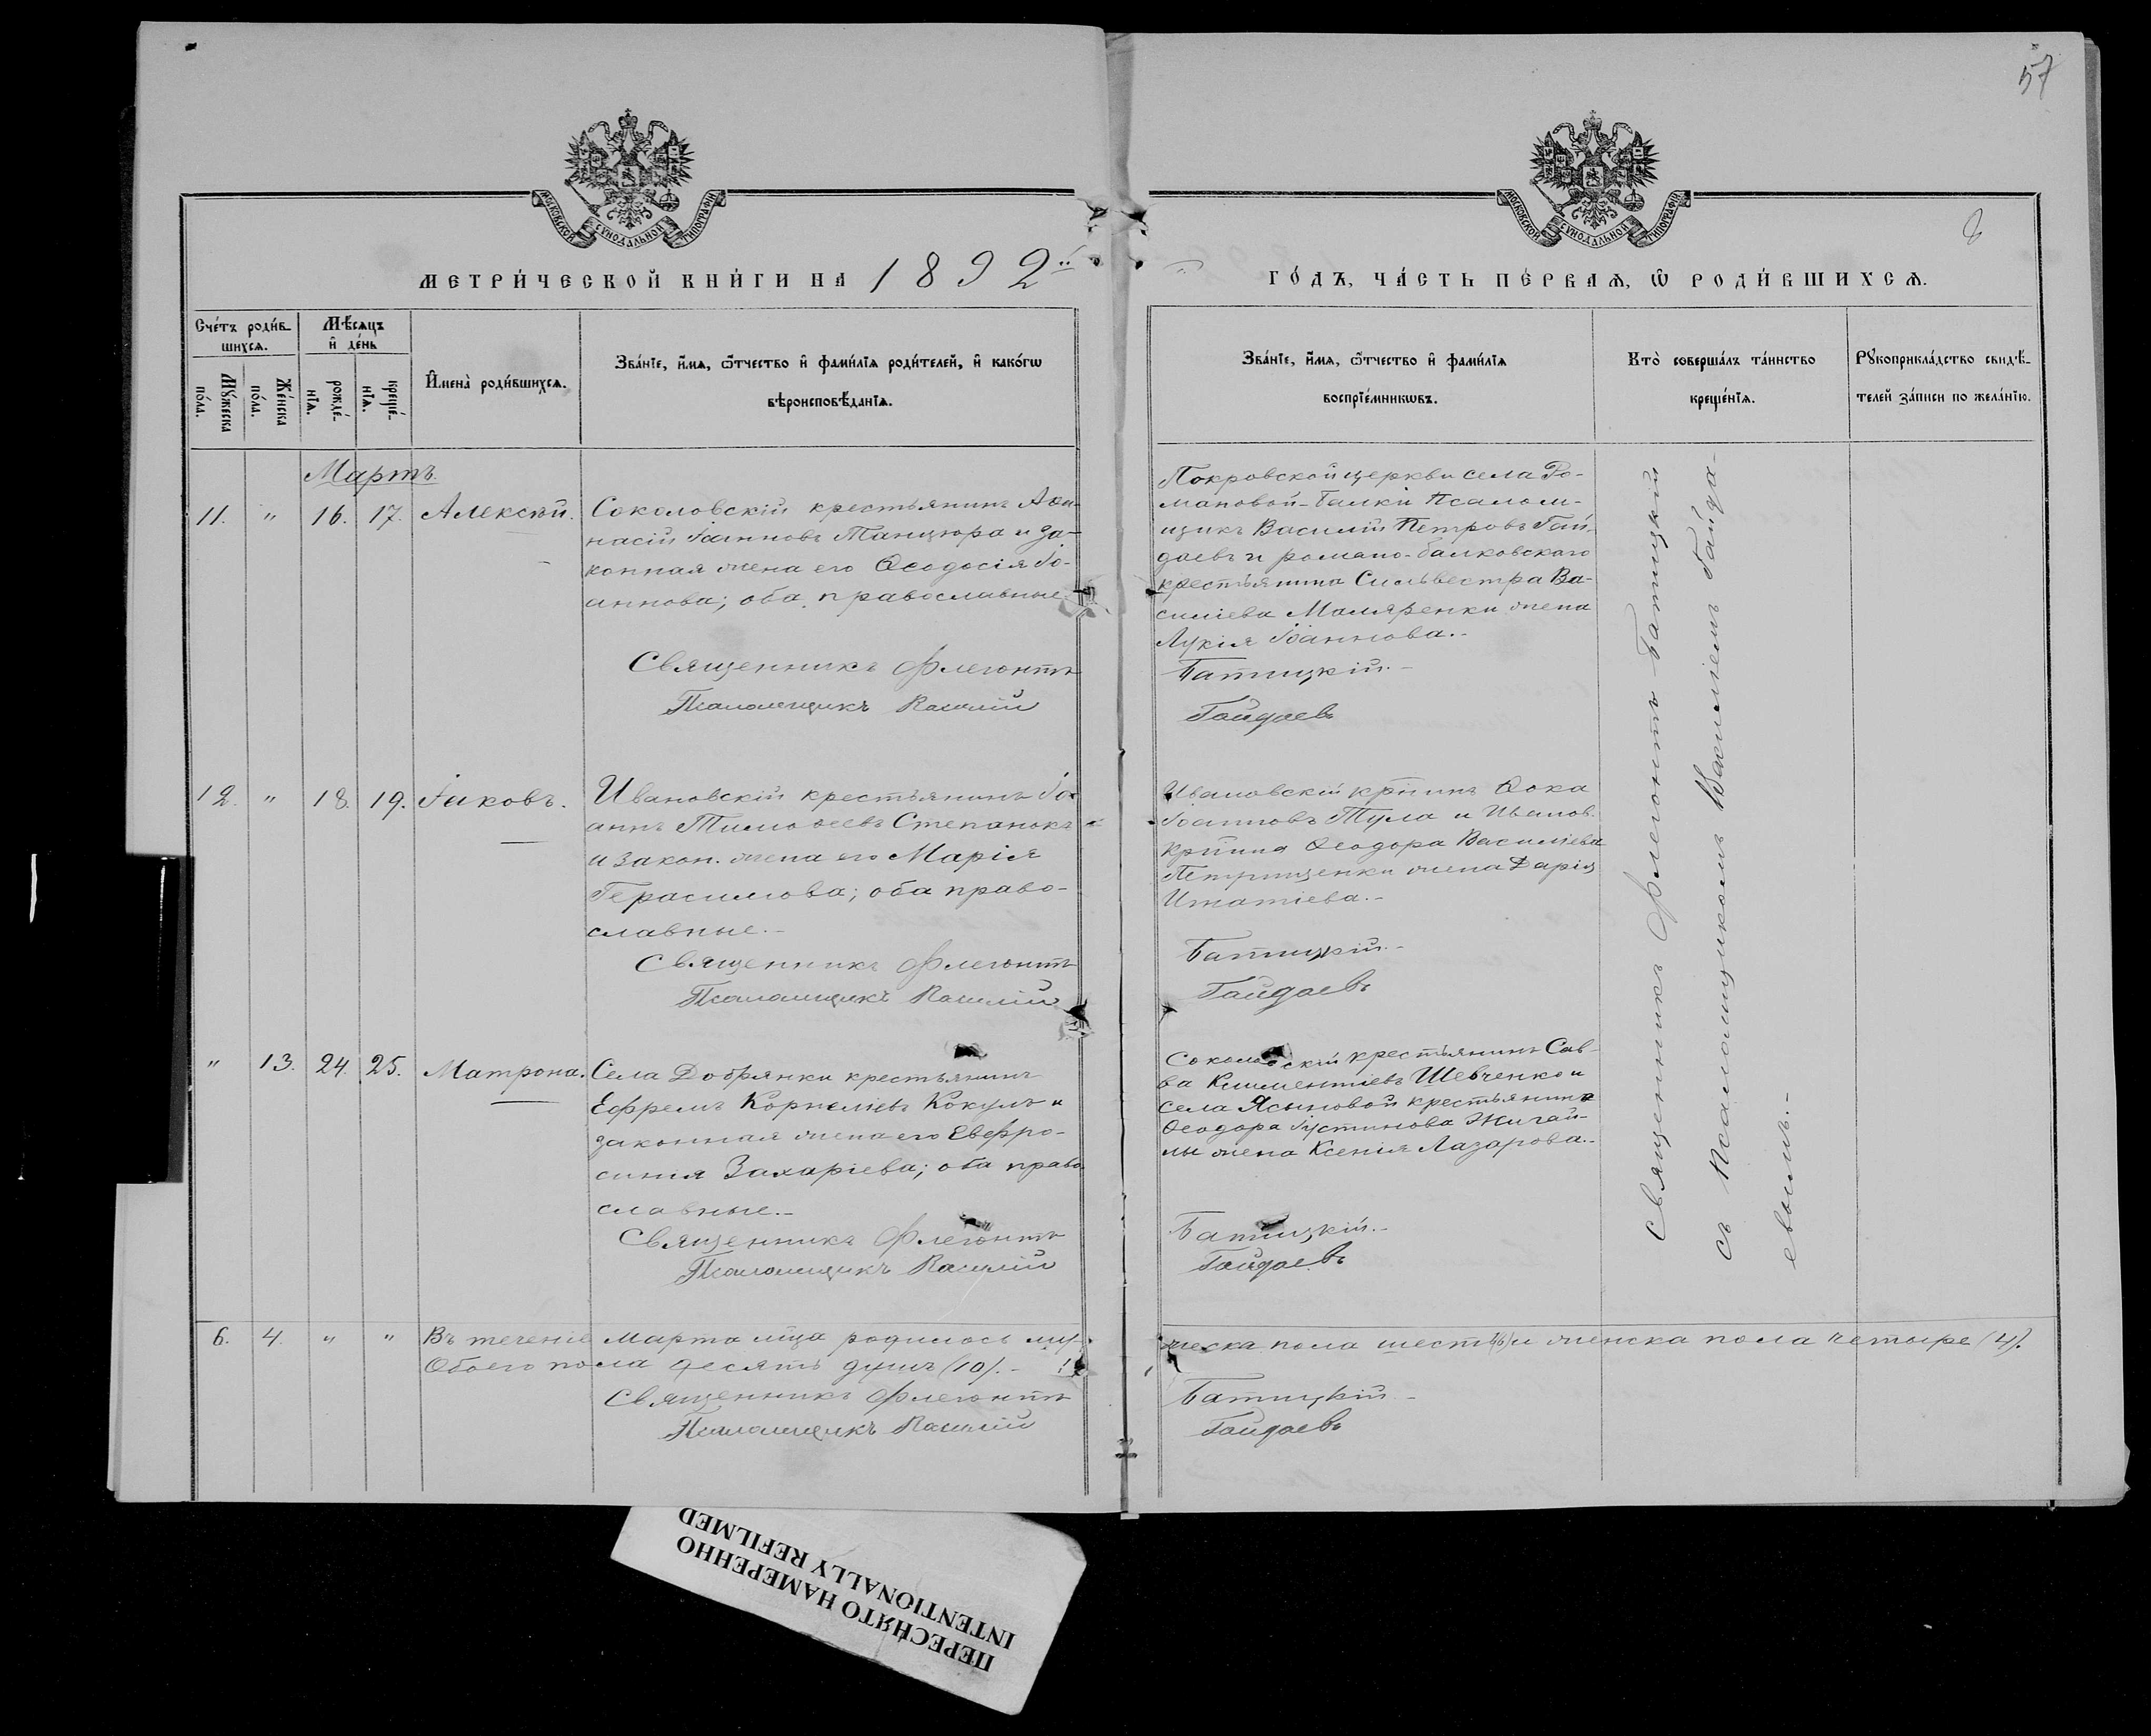 57
МОСКОВСКОЙ СУНОДАЛЬНОЙ ТИПОГРАФІИ
МОСКОВСКОЙ СУНОДАЛЬНОЙ ТИПОГРАФІИ
8
МЕТРИ́ЧЕСКОЙ КНИ́ГИ НА 1892й
ГО́ДЪ, ЧА́СТЬ ПЕ́РВАѦ, Ѡ҆ РОДИ́ВШИХСѦ.
Сче́тъ роди́вшихсѧ.
Мꙋ́жеска по́ла.
Же́нска по́ла.
Мѣ́сѧцъ и҆ де́нь
рожде́нїѧ.
креще́нїѧ.
И҆мена̀ роди́вшихсѧ.
Зва́нїе, и҆́мѧ, ѻ҆́тчество и҆ фами́лїѧ роди́телей, и҆ како́гѡ
вѣроисповѣ́данїѧ.
Зва́нїе, и҆́мѧ, ѻ҆́тчество и҆ фами́лїѧ
воспрїе́мникѡвъ.
Кто̀ соверша́лъ та́инство
креще́нїѧ.
Рꙋкоприкла́дство свидѣ́-
телей за́писи по жела́нїю.
Мартъ.
11. " 16. 17. Алексѣй.
Соколовскій крестьянинъ Аѳа-
насій Іоанновъ Танцюра и за-
конная жена его Ѳеодосія Іо-
аннова; оба православные.
Священникъ Флегонтъ
Псаломщикъ Василій
Покровской церкви села Ро-
мановой-Балки Псалом-
щикъ Василій Петровъ Гай-
даевъ и романо-балковскаго
крестьянина Сильвестра Ва-
силіева Маляренки жена
Лукія Іоаннова.-
Батицкій.-
Гайдаевъ
12. " 18. 19. Іаковъ.
Ивановскій крестьянинъ Іо-
аннъ Тимоѳеевъ Степанокъ
и закон. жена его Марія
Герасимова; оба право-
славные.-
Священникъ Флегонтъ
Псаломщикъ Василій
Ивановскій крнинъ Ѳока
Іоанновъ Тула и Иванов.
крнина Ѳеодора Василіева
Петрищенки жена Дарія
Игнатіева.-
Батицкій.-
Гайдаевъ
" 13. 24. 25. Матрона.
Села Добрянки крестьянинъ
Ефремъ Корнеліевъ Кокулъ и
законная жена его Евфро-
синія Захаріева; оба право-
славные.-
Священникъ Флегонтъ
Псаломщикъ Василій
Соколовскій крестьянинъ Сав-
ва Климентіевъ Шевченко и
села Ясыновой крестьянина
Ѳеодора Іустинова Жигай-
лы жена Ксенія Лазарова.-
Батицкій.-
Гайдаевъ
Священникъ Флегонтъ Батицкій
съ Псаломщикомъ Василіемъ Гайда-
евымъ.-
6. 4. " " Въ теченіе марта мца родилось му-
жеска пола шесть (6) и женска пола четыре (4).
Обоего пола десять душъ (10).-
Священникъ Флегонтъ
Псаломщикъ Василій
Батицкій.-
Гайдаевъ
ПЕРЕСНЯТО НАМЕРЕННО
INTENTIONALLY REFILMED